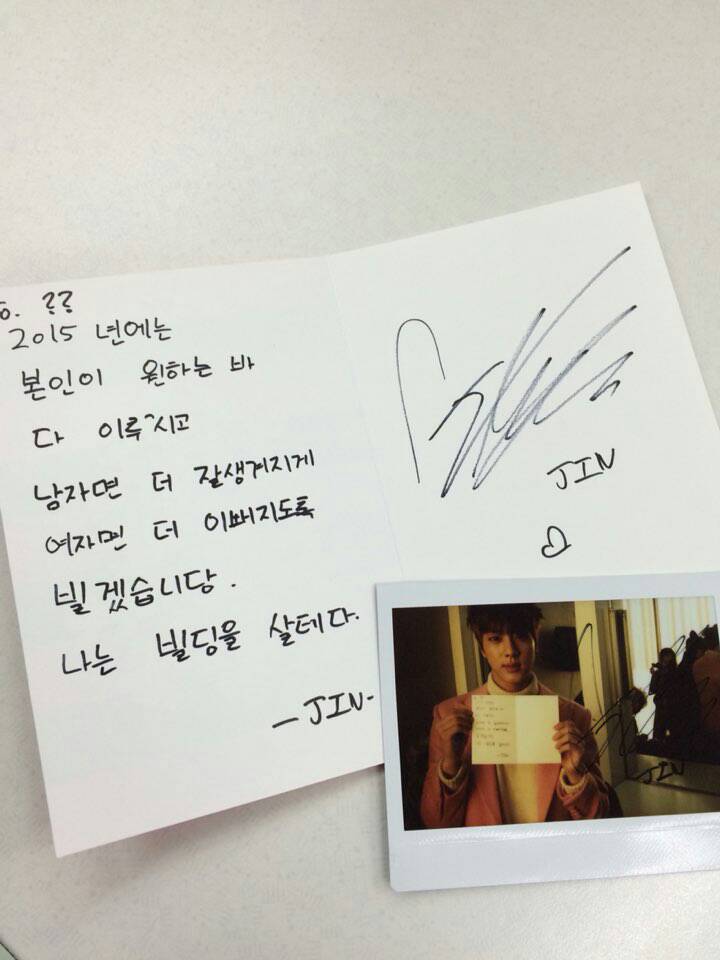 To. ??
2015 년에는
본인이 원하는 바
다 이루^시고
남자면 더 잘생겨지게
여자면 더 이뻐지도록
빌겠습니당.
나는 빌딩을 살테다.
-JIN-
JIN
JIN